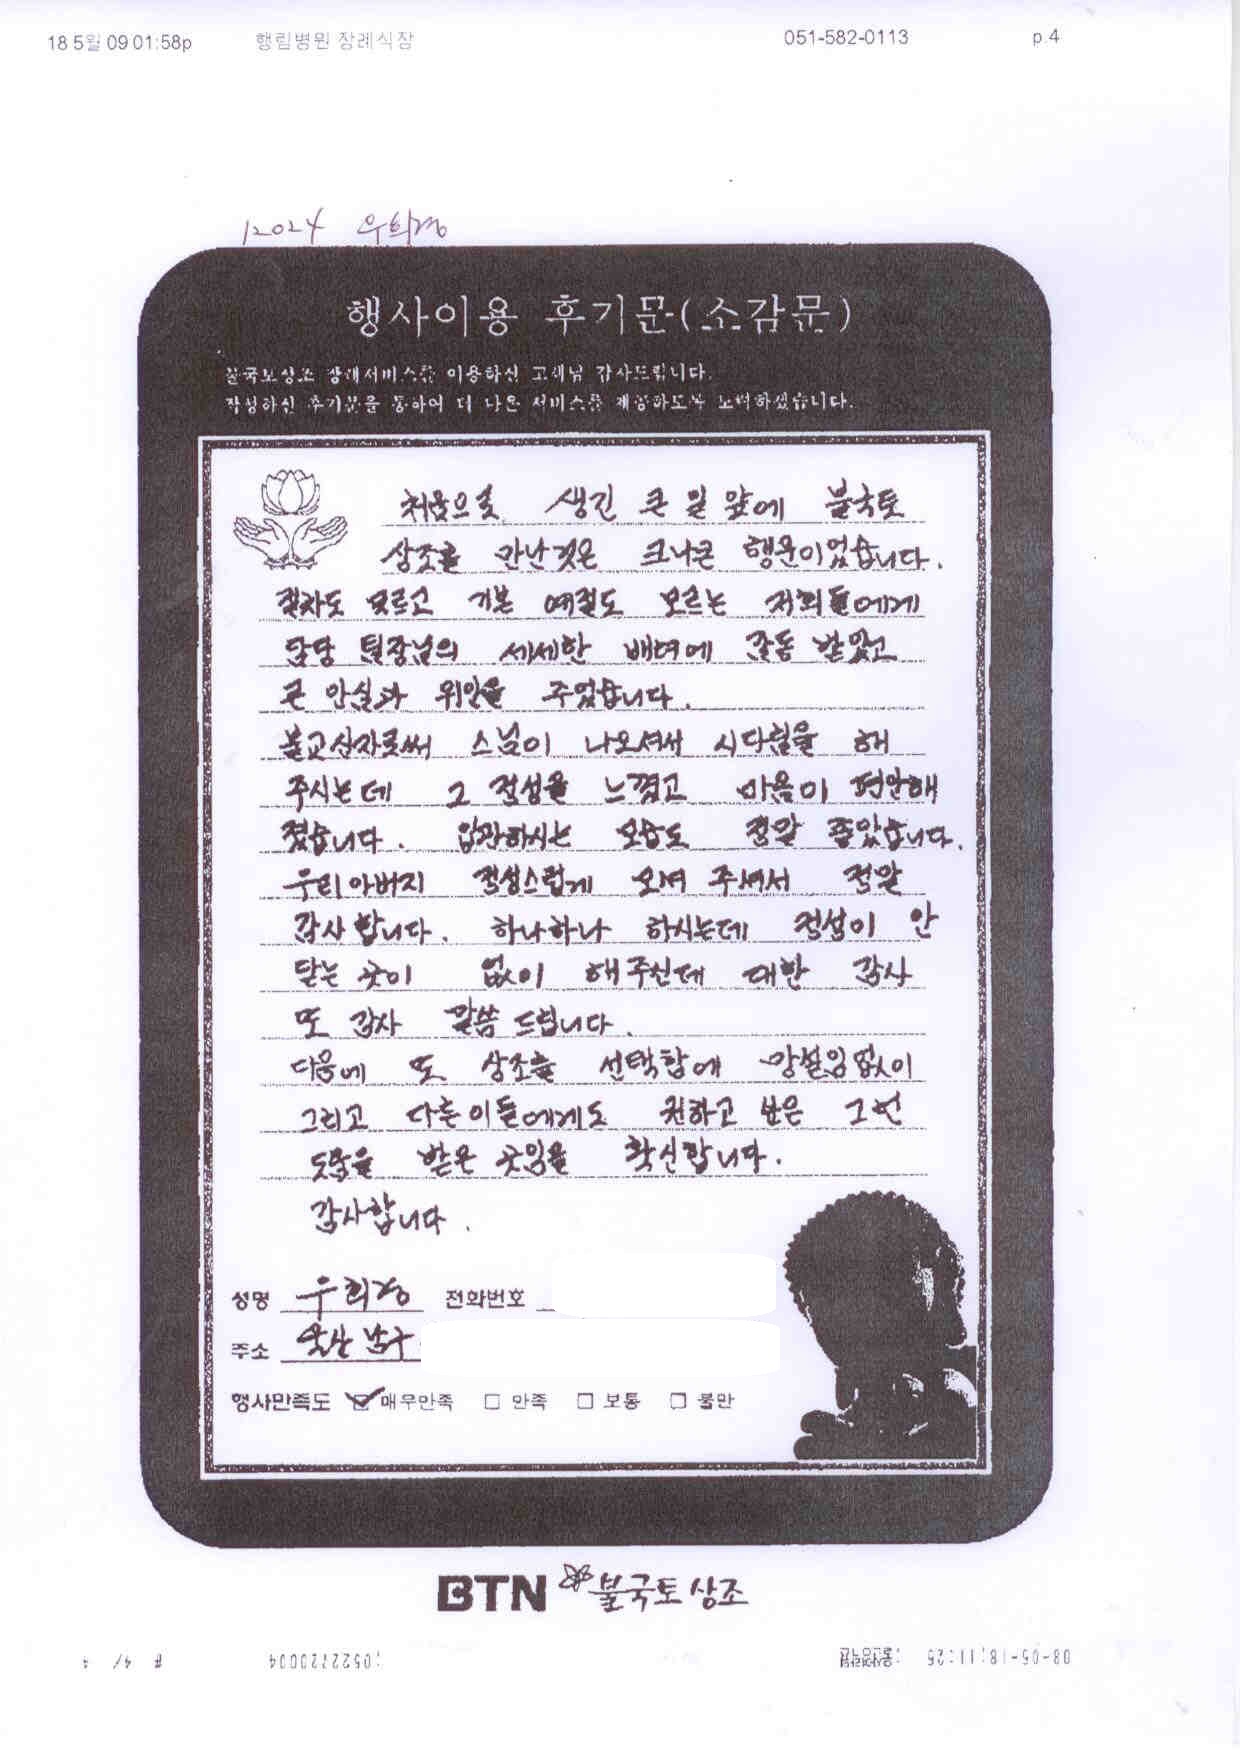 18 5월 09 01:58p 행림병원 장례식장 051-582-0113 p.4
12024 우희경
행사이용 후기문(소감문)
불국토상조 장례서비스를 이용하신 고객님 감사드립니다.
작성하신 후기문을 통하여 더 나은 서비스를 제공하도록 노력하겠습니다.
처음으로 생긴 큰 일 앞에 불국토
상조를 만난것은 크나큰 행운이었습니다.
절차도 모르고 기본 예절도 모르는 저희들에게
담당 팀장님의 세세한 배려에 감동 받았고
큰 안심과 위안을 주었습니다.
불교신자로써 스님이 나오셔서 시다림을 해
주시는데 그 정성을 느꼈고 마음이 편안해
졌습니다. 입관하시는 모습도 정말 좋았습니다.
우리아버지 정성스럽게 모셔 주셔서 정말
감사합니다. 하나하나 하시는데 정성이 안
닫는 곳이 없이 해주신데 대한 감사
또 감사 말씀 드립니다.
다음에 또 상조를 선택함에 망설임없이
그리고 다른이들에게도 권하고 싶은 그런
도움을 받은 곳임을 확신합니다.
감사합니다.
성명 우희경 전화번호
주소 울산 남구
행사만족도 매우만족 만족 보통 불만
BTN 불국토상조
# 4/ 4 ;0522720004 08-05-18;11:25